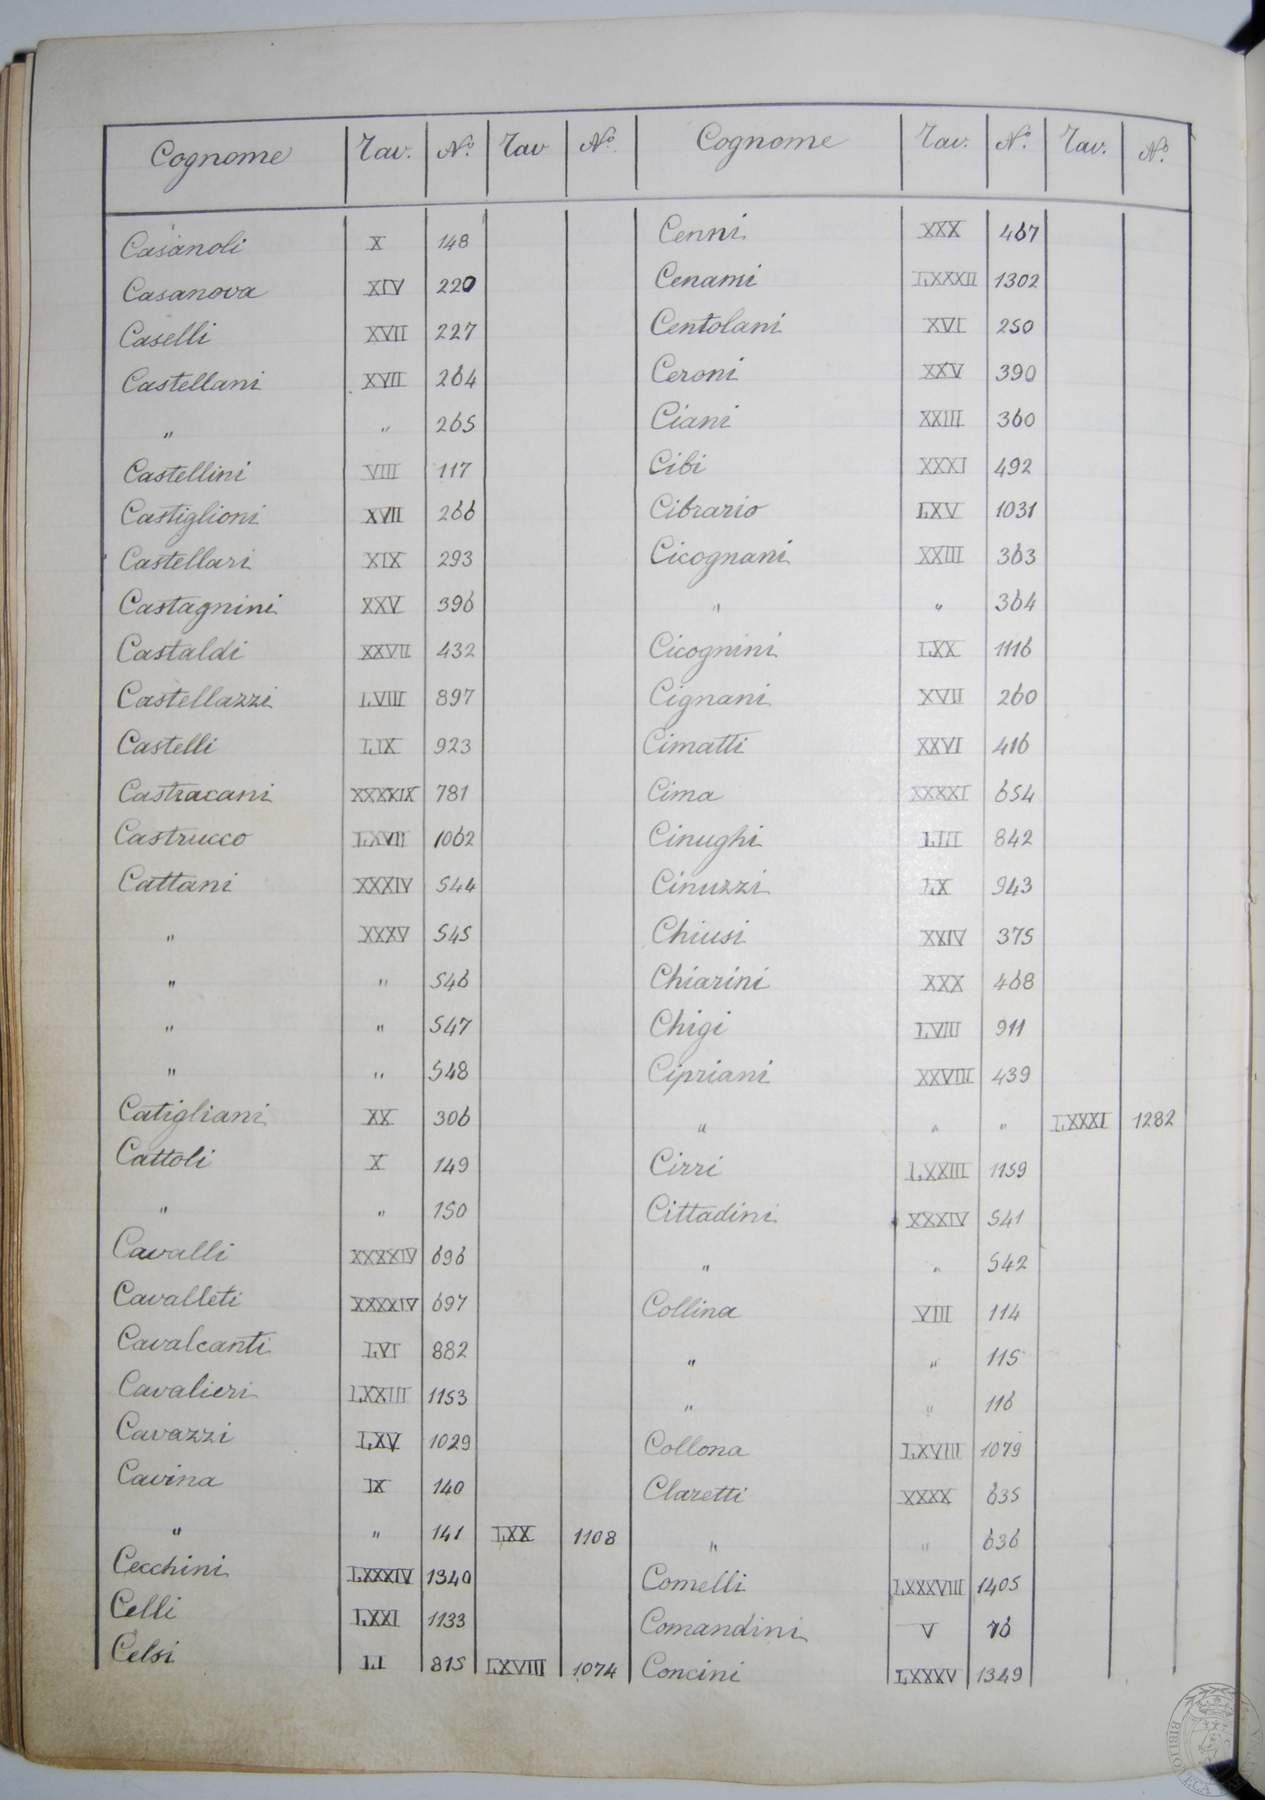 Cognome Tav. No. Tav No. Cognome Tav. No. Tav. No.
Casanoli X 148 Cenni XXX 467
Casanova XIV 220 Cenami LXXXII 1302
Caselli XVII 227 Centolani XVI 250
Castellani XVII 264 Ceroni XXV 390
" " 265 Ciani XXIII 360
Castellini VIII 117 Cibi XXXI 492
Castiglioni XVII 266 Cibrario LXV 1031
Castellari XIX 293 Cicognani XXIII 363
Castagnini XXV 396 " " 364
Castaldi XXVII 432 Cicognini LXX 1116
Castellazzi LVIII 897 Cignani XVII 260
Castelli LIX 923 Cimatti XXVI 416
Castracani XXXXIX 781 Cima XXXXI 654
Castrucco LXVII 1062 Cinughi LIII 842
Cattani XXXIV 544 Cinuzzi LX 943
" XXXV 545 Chiusi XXIV 375
" " 546 Chiarini XXX 468
" " 547 Chigi LVIII 911
" " 548 Cipriani XXVIII 439
Catigliani XX 306 " " " LXXXI 1282
Cattoli X 149 Cirri LXXIII 1159
" " 150 Cittadini XXXIV 541
Cavalli XXXXIV 696 " " 542
Cavalleti XXXXIV 697 Collina VIII 114
Cavalcanti LVI 882 " " 115
Cavalieri LXXIII 1153 " " 116
Cavazzi LXV 1029 Collona LXVIII 1079
Cavina IX 140 Claretti XXXX 635
" " 141 LXX 1108 " " 636
Cecchini LXXXIV 1340 Comelli LXXXVIII 1405
Celli LXXI 1133 Comandini V 76
Celsi LI 815 LXVIII 1074 Concini LXXXV 1349